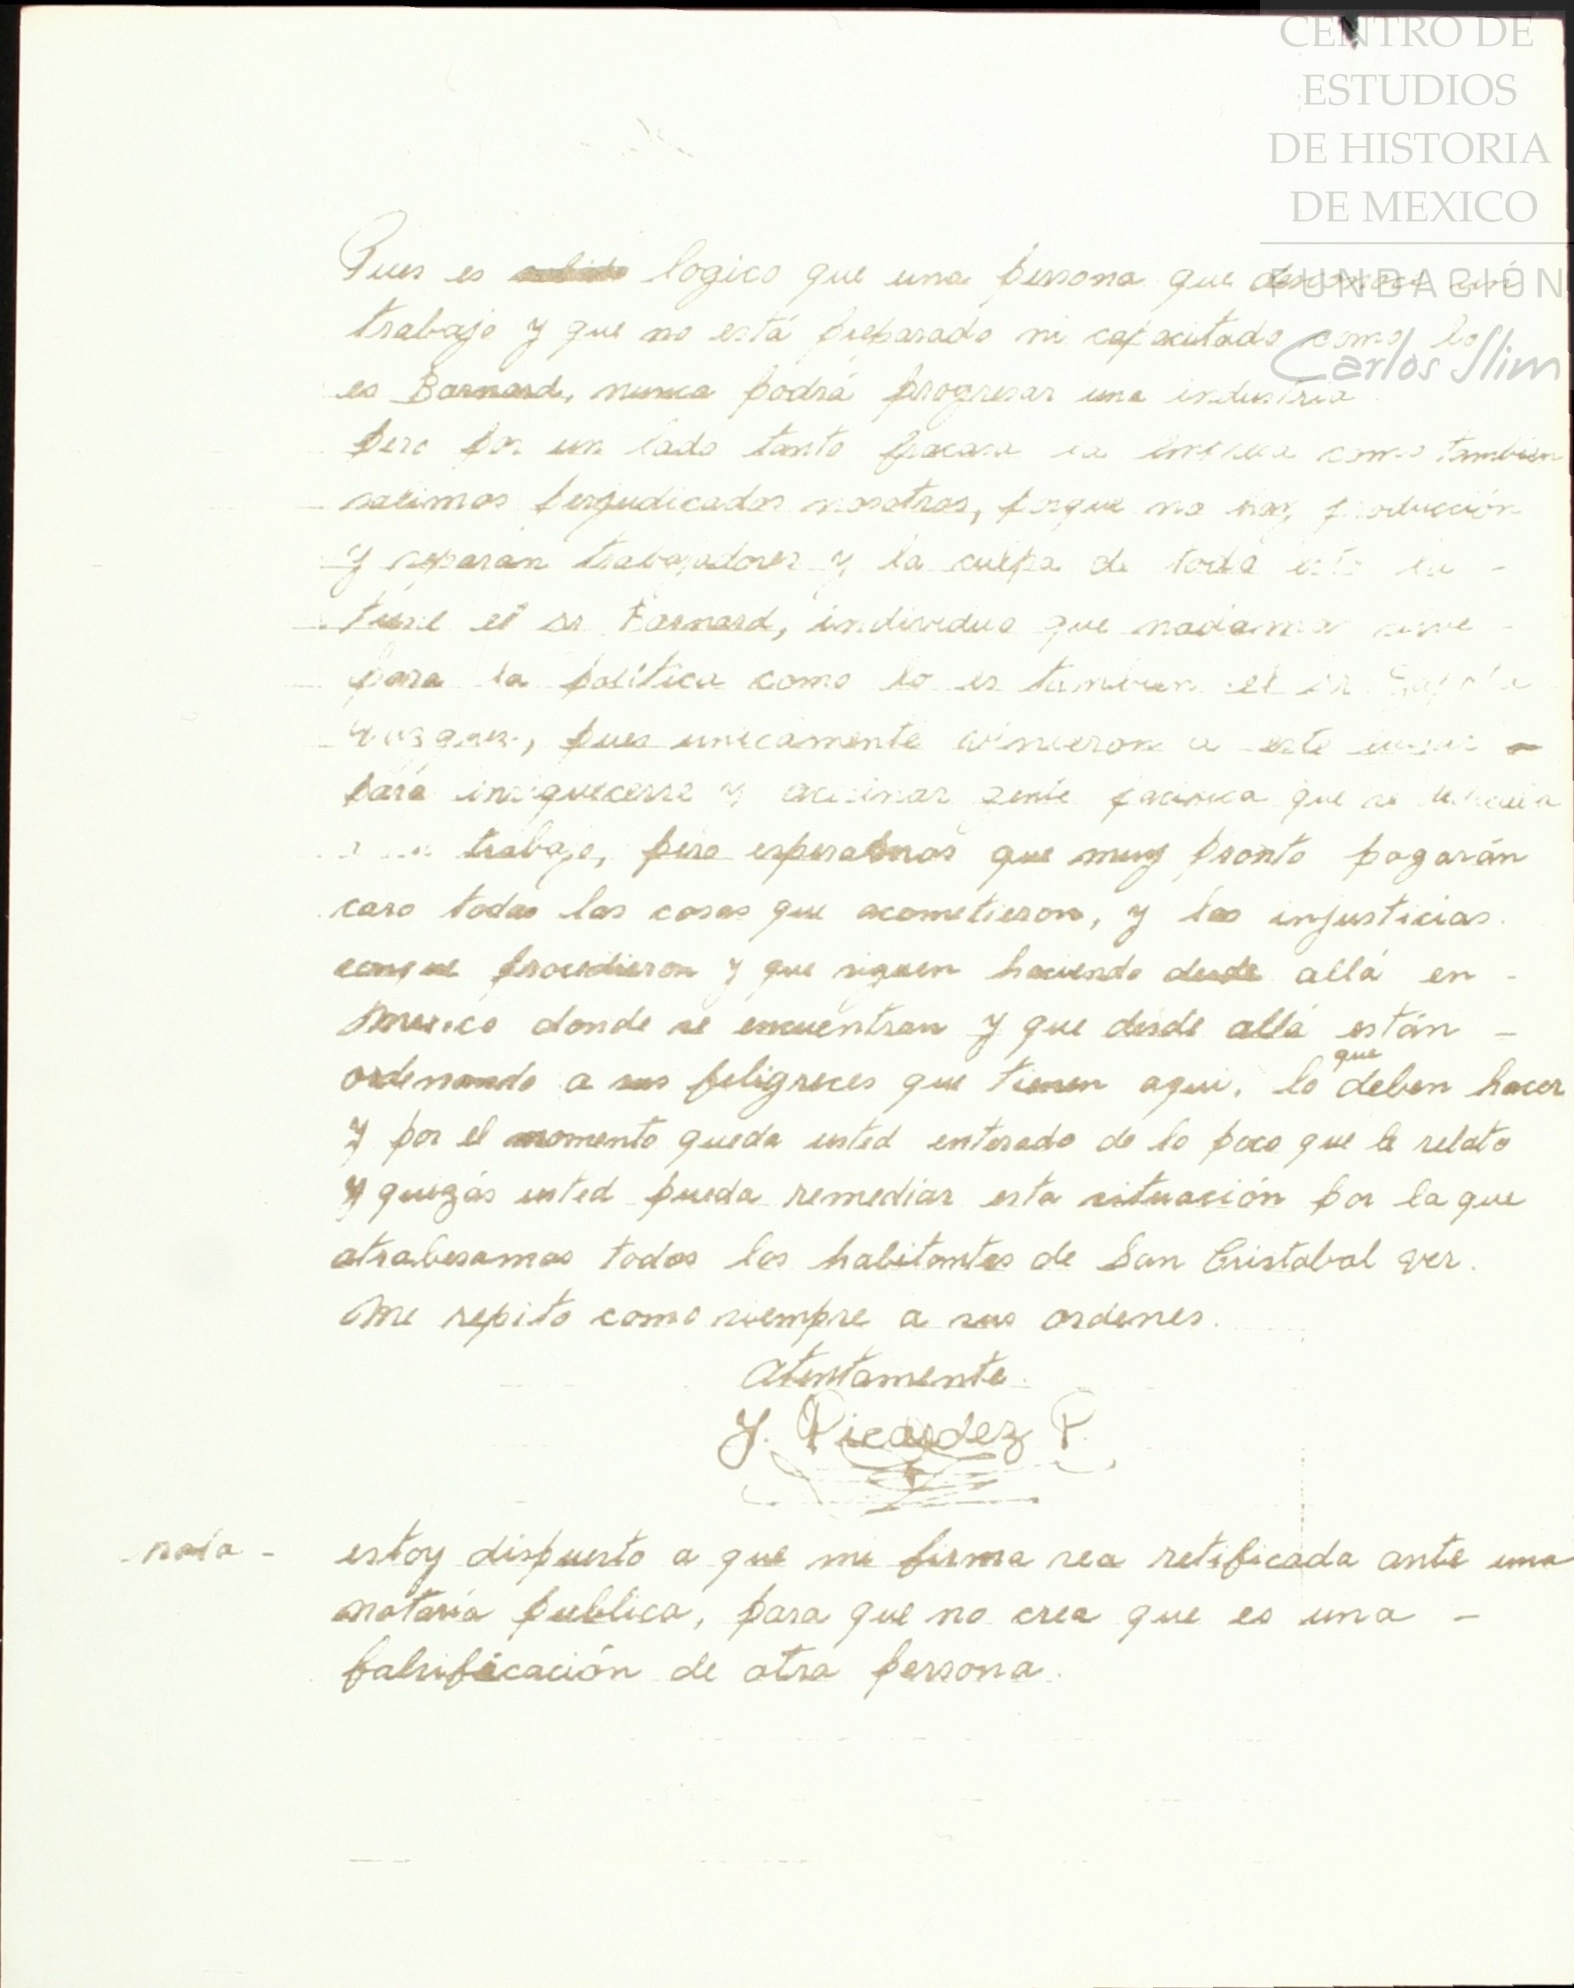 CENTRO DE
ESTUDIOS
DE HISTORIA
DE MEXICO
FUNDACIÓN
Carlos Slim
Pues es logico que una persona que desconoce un
trabajo y que no está preparado ni capacitado como lo
es Barnard, nunca podrá progresar una industria
pero por un lado tanto fracasa la empresa como tambien
salimos perjudicados nosotros, porque no hay producción
y reparan trabajadores y la culpa de toda esto la -
tiene el sr Barnard, individuo que nadamas sirve -
para la política como lo es tambien el sr.
pues unicamente vinieron a este lugar -
para enriquecerse y acecinar gente pacifica que se dedicaba
a su trabajo, pero esperamos que muy pronto pagarán
caro todas las cosas que acometieron, y las injusticias.
conque procedieron y que siguen haciendo desde allá en -
Mexico donde se encuentran y que desde allá están -
ordenando a sus feligreces que tienen aqui, lo que deben hacer
y por el momento queda usted enterado de lo poco que le relato
y quizás usted pueda remediar esta situación por la que
atrabesamos todos los habitantes de San Cristobal ver.
Me repito como siempre a sus ordenes.
Atentamente.
Y. Picaedez P.
- nota - estoy dispuesto a que mi firma sea retificada ante una
notaria publica, para que no crea que es una -
falsificación de otra persona.